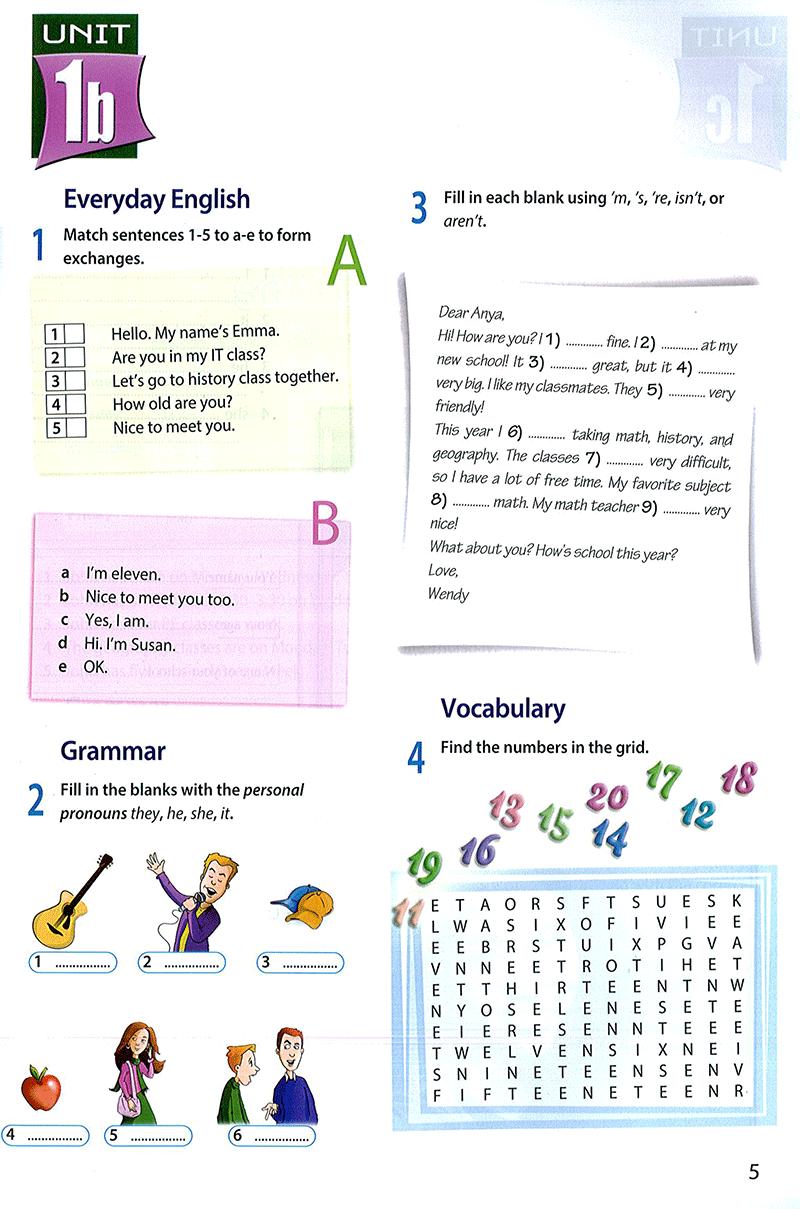 UNIT
1b
Everyday English
1 Match sentences 1-5 to a-e to form
exchanges.
A
1 Hello. My name's Emma.
2 Are you in my IT class?
3 Let's go to history class together.
4 How old are you?
5 Nice to meet you.
B
a I'm eleven.
b Nice to meet you too.
c Yes, I am.
d Hi. I'm Susan.
e OK.
Grammar
2 Fill in the blanks with the personal
pronouns they, he, she, it.
1 ............... 2 ............... 3 ...............
4 ............... 5 ............... 6 ...............
UNIT
1c
3 Fill in each blank using 'm, 's, 're, isn't, or
aren't.
Dear Anya,
Hi! How are you? I 1) ............ fine. I 2) ............ at my
new school! It 3) ............ great, but it 4) ............
very big. I like my classmates. They 5) ............ very
friendly!
This year I 6) ............ taking math, history, and
geography. The classes 7) ............ very difficult,
so I have a lot of free time. My favorite subject
8) ............ math. My math teacher 9) ............ very
nice!
What about you? How's school this year?
Love,
Wendy
Vocabulary
4 Find the numbers in the grid.
17 18
13 15 20 12
14
19 16
11
E T A O R S F T S U E S K
L W A S I X O F I V I E E
E E B R S T U I X P G V A
V N N E E T R O T I H E T
E T T H I R T E E N T N W
N Y O S E L E N E S E T E
E I E R E S E N N T E E E
T W E L V E N S I X N E I
S N I N E T E E N S E N V
F I F T E E N E T E E N R
5